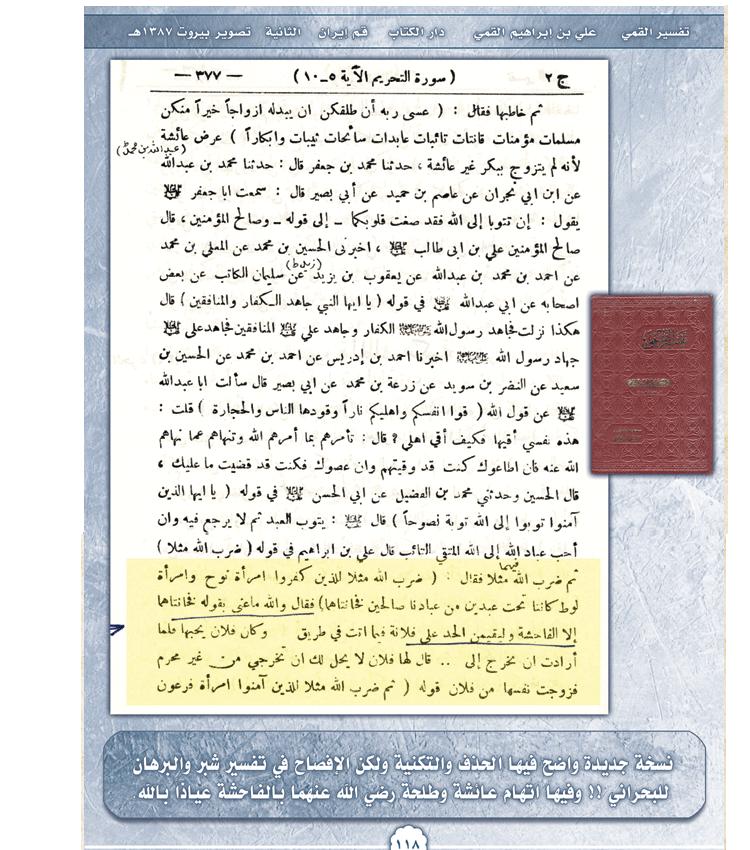 تفسير القمي علي بن إبراهيم القمي دار الكتاب قم إيران الثانية تصوير بيروت ١٣٨٧هـ
ج ٢ ( سورة التحريم الآية ٥ــ١٠ ) — ٣٧٧ —
ثم خاطبها فقال : ( عسى ربه أن طلقكن ان يبدله ازواجاً خيراً منكن
مسلمات مؤمنات قانتات تائبات عابدات سائحات ثيبات وابكاراً ) عرض عائشة
(عبدالله بن محمد)
لأنه لم يتزوج ببكر غير عائشة ، حدثنا محمد بن جعفر قال : حدثنا محمد بن عبدالله
عن ابن ابي نجران عن عاصم بن حميد عن أبي بصير قال : سمعت ابا جعفر
يقول : إن تتوبا إلى الله فقد صغت قلوبكما ــ إلى قوله ــ وصالح المؤمنين ، قال
صالح المؤمنين علي بن ابى طالب ، اخبرنى الحسين بن محمد عن المعلى بن محمد
عن احمد بن محمد بن عبدالله عن يعقوب بن يزيد عن سليمان الكاتب عن بعض
اصحابه عن ابي عبدالله في قوله ( يا ايها النبي جاهد الكفار والمنافقين ) قال
هكذا نزلت فجاهد رسول الله الكفار وجاهد علي المنافقين فجاهد علي
جهاد رسول الله اخبرنا احمد بن إدريس عن احمد بن محمد عن الحسين بن
سعيد عن النضر بن سويد عن زرعة بن محمد عن ابي بصير قال سألت ابا عبدالله
عن قول الله ( قوا انفسكم واهليكم ناراً وقودها الناس والحجارة ) قلت :
هذه نفسي أقيها فكيف أقي اهلي ? قال : تأمرهم بما أمرهم الله وتنهاهم عما نهاهم
الله عنه فان اطاعوك كنت قد وقيتهم وان عصوك فكنت قد قضيت ما عليك ،
قال الحسين وحدثني محمد بن الفضيل عن ابي الحسن في قوله ( يا ايها الذين
آمنوا توبوا إلى الله توبة نصوحاً ) قال : يتوب العبد ثم لا يرجع فيه وان
أحب عباد الله إلى الله المتقي التائب قال علي بن ابراهيم في قوله ( ضرب الله مثلا )
فيهما
ثم ضرب الله مثلا فقال : ( ضرب الله مثلا للذين كفروا امرأة نوح وامرأة
لوط كانتا تحت عبدين من عبادنا صالحين فخانتاهما) فقال والله ماعنى بقوله فخانتاهما
إلا الفاحشة وليقيمن الحد على فلانة فيما اتت في طريق وكان فلان يحبها فلما
أرادت ان تخرج إلى .. قال لها فلان لا يحل لك ان تخرجي من غير محرم
فزوجت نفسها من فلان قوله ( ثم ضرب الله مثلا للذين آمنوا امرأة فرعون
نسخة جديدة واضح فيها الحذف والتكنية ولكن الإفصاح في تفسير شبر والبرهان
للبحراني !! وفيها اتهام عائشة وطلحة رضي الله عنهما بالفاحشة عياذا بالله
١١٨